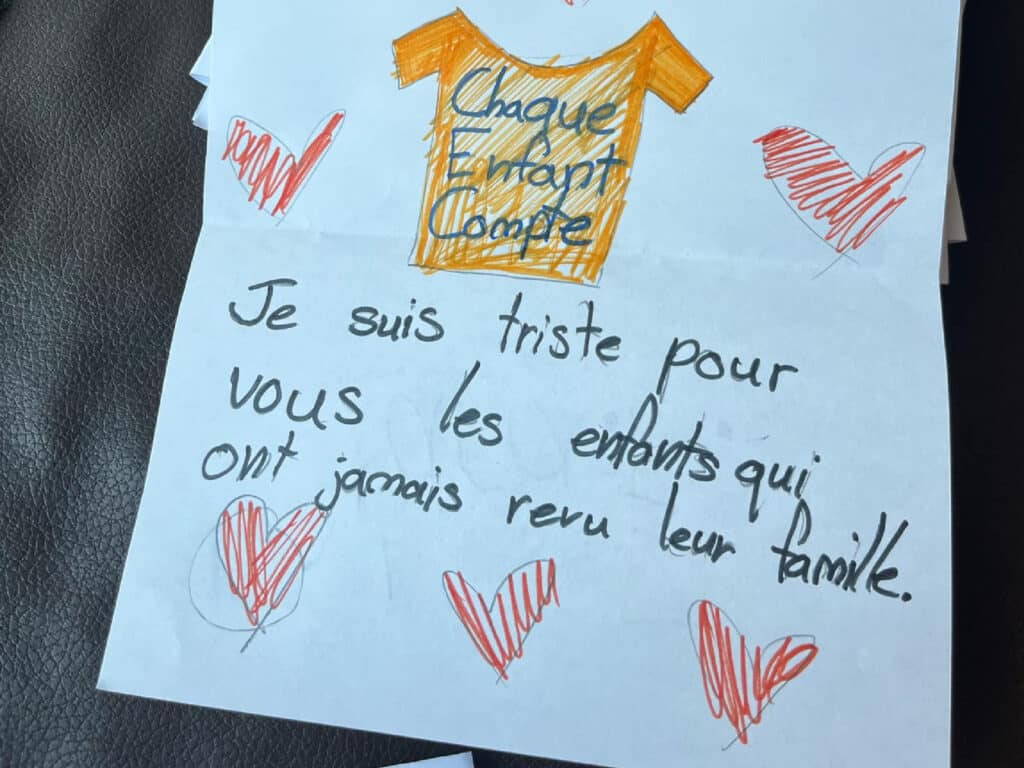 Chaque
Enfant
Compte
Je suis triste pour
vous les enfants qui
ont jamais revu leur famille.